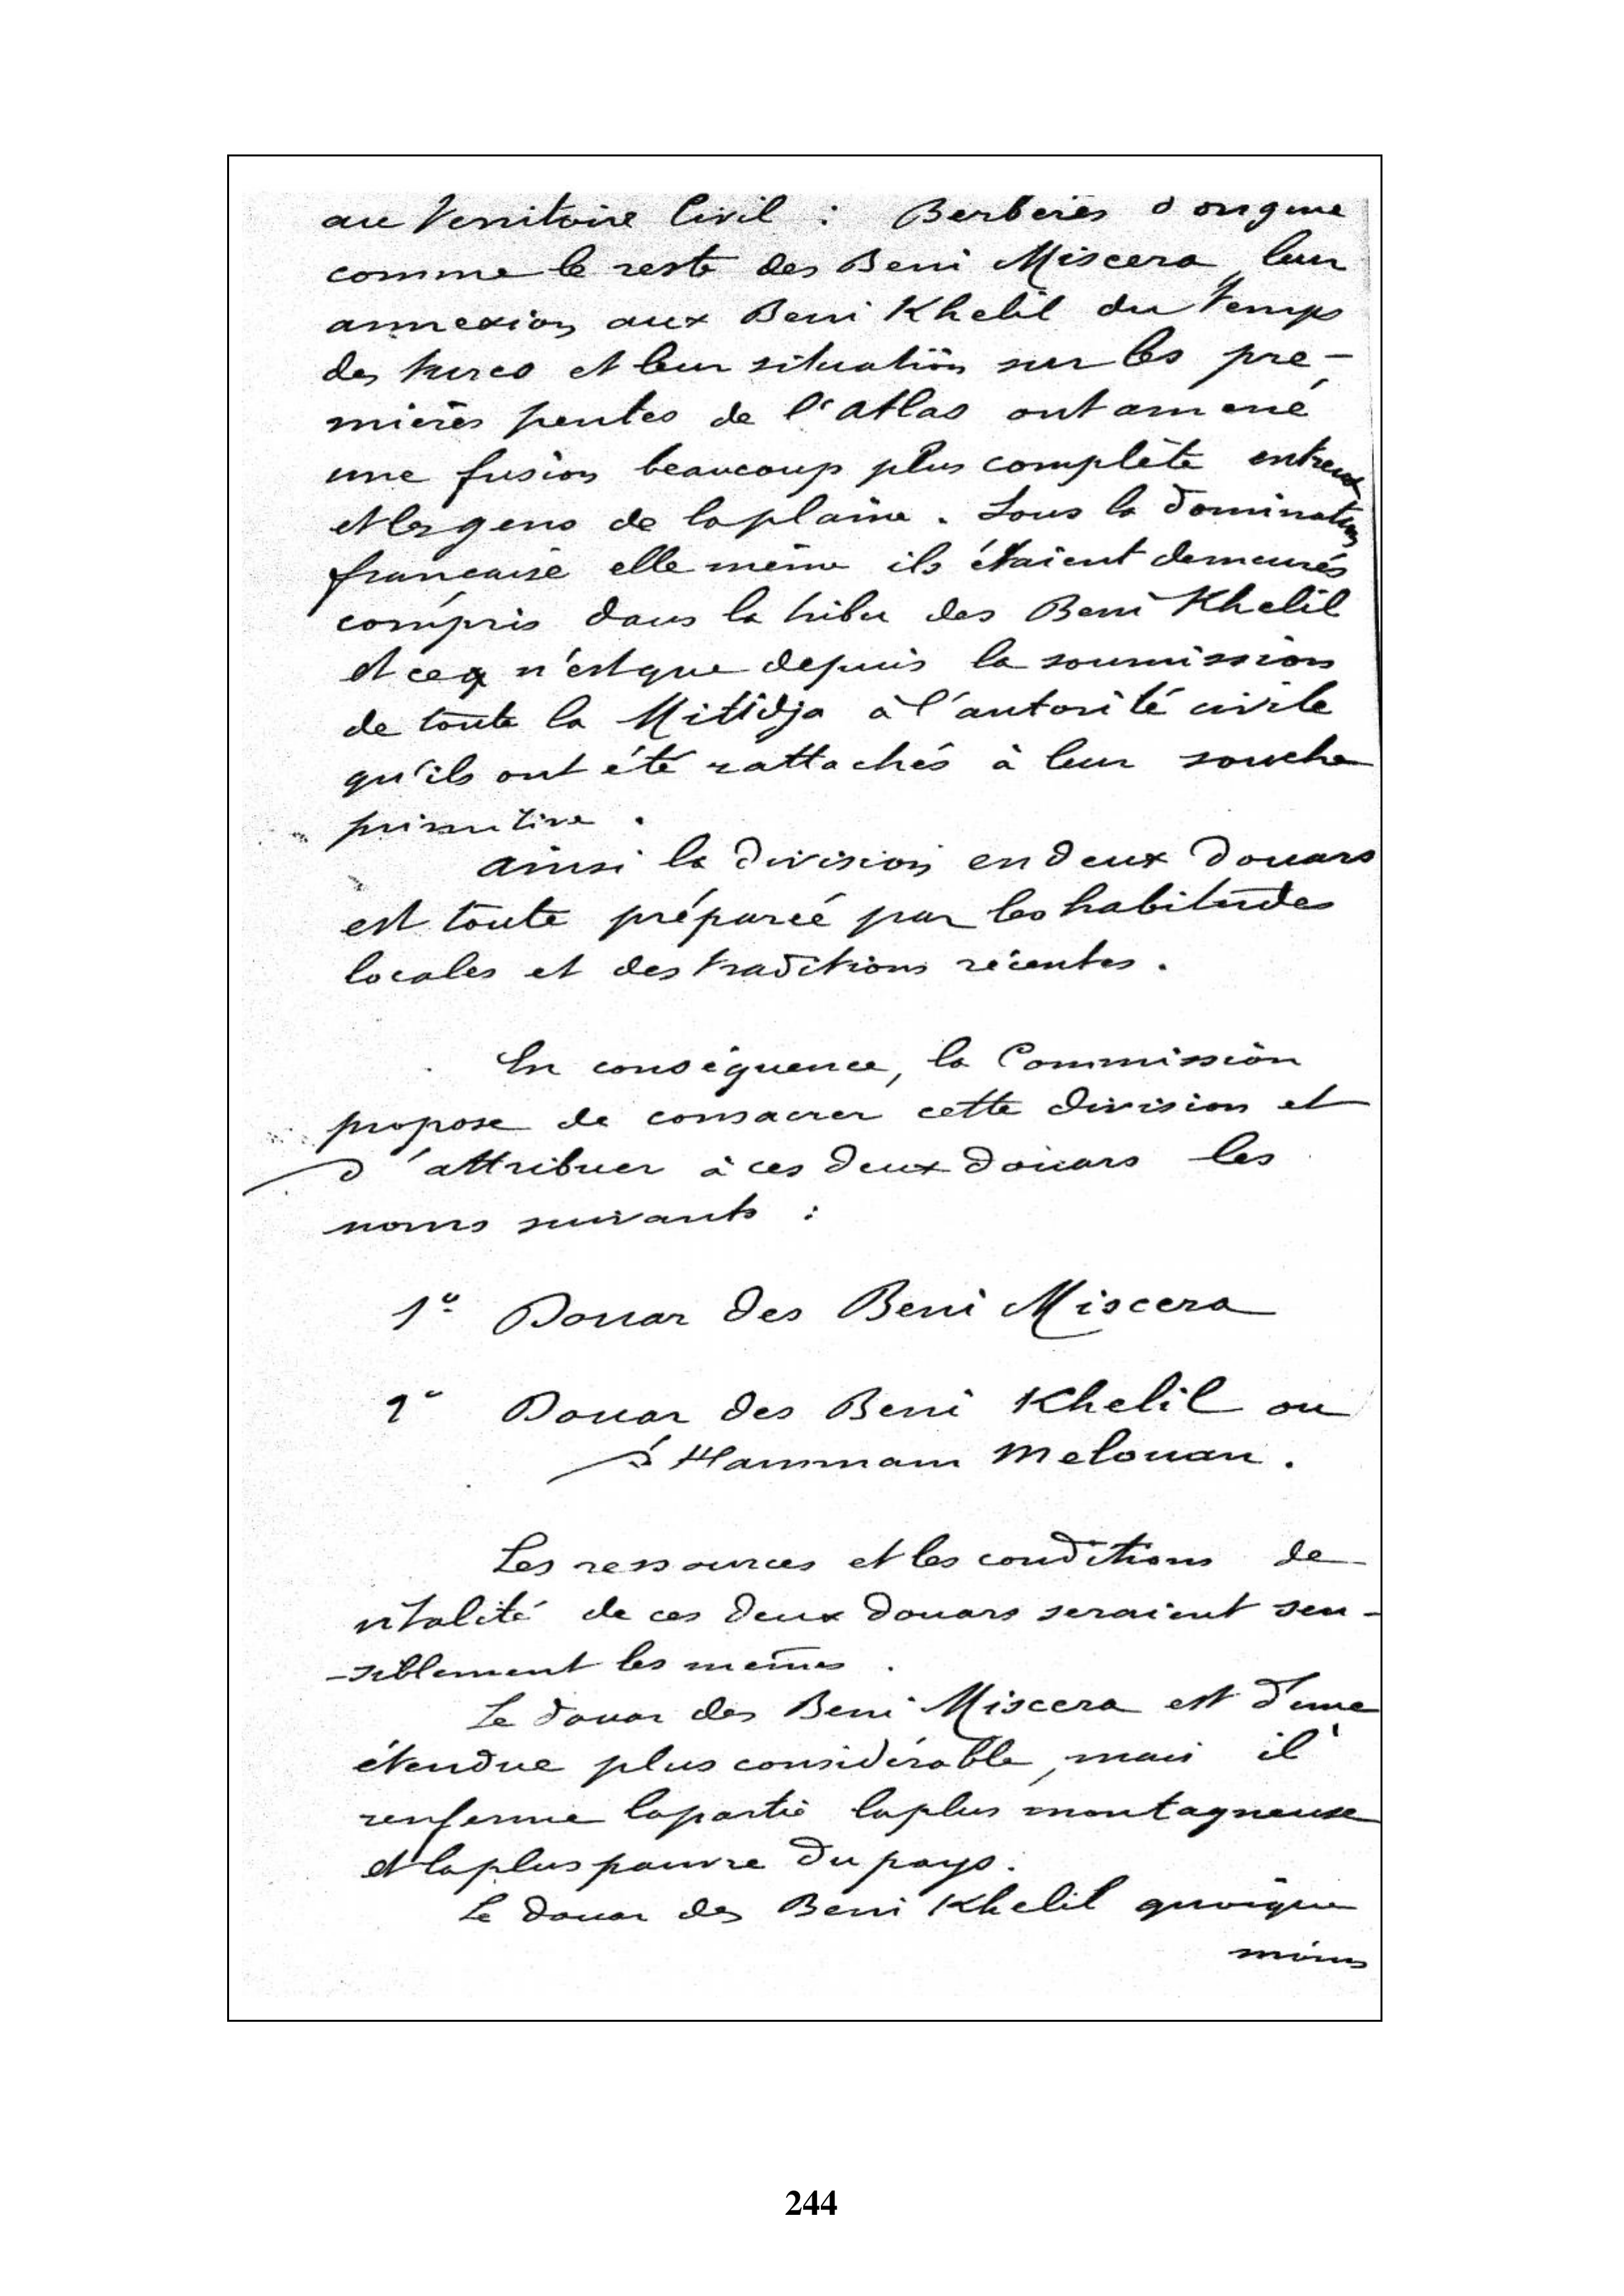 au Territoire Civil : Berbères d'origine
comme le reste des Beni Miscera, leur
annexion aux Beni Khelil du temps
des turcs et leur situation sur les pre-
mières pentes de l'Atlas ont amené
une fusion beaucoup plus complète entre eux
et les gens de la plaine. Sous la domination
française elle même ils étaient demeurés
compris dans la tribu des Beni Khelil
et ce n'est que depuis la soumission
de toute la Mitidja à l'autorité civile
qu'ils ont été rattachés à leur souche
primitive.
Ainsi la division en deux douars
est toute préparée par les habitudes
locales et des traditions récentes.
En conséquence, la Commission
propose de consacrer cette division et
d'attribuer à ces deux douars les
noms suivants :
1° Douar des Beni Miscera
2° Douar des Beni Khelil ou
d'Hammam Melouan.
Les ressources et les conditions de
vitalité de ces deux douars seraient sen-
-siblement les mêmes.
Le douar des Beni Miscera est d'une
étendue plus considérable, mais il
renferme la partie la plus montagneuse
et la plus pauvre du pays.
Le douar des Beni Khelil quoique
moins
244